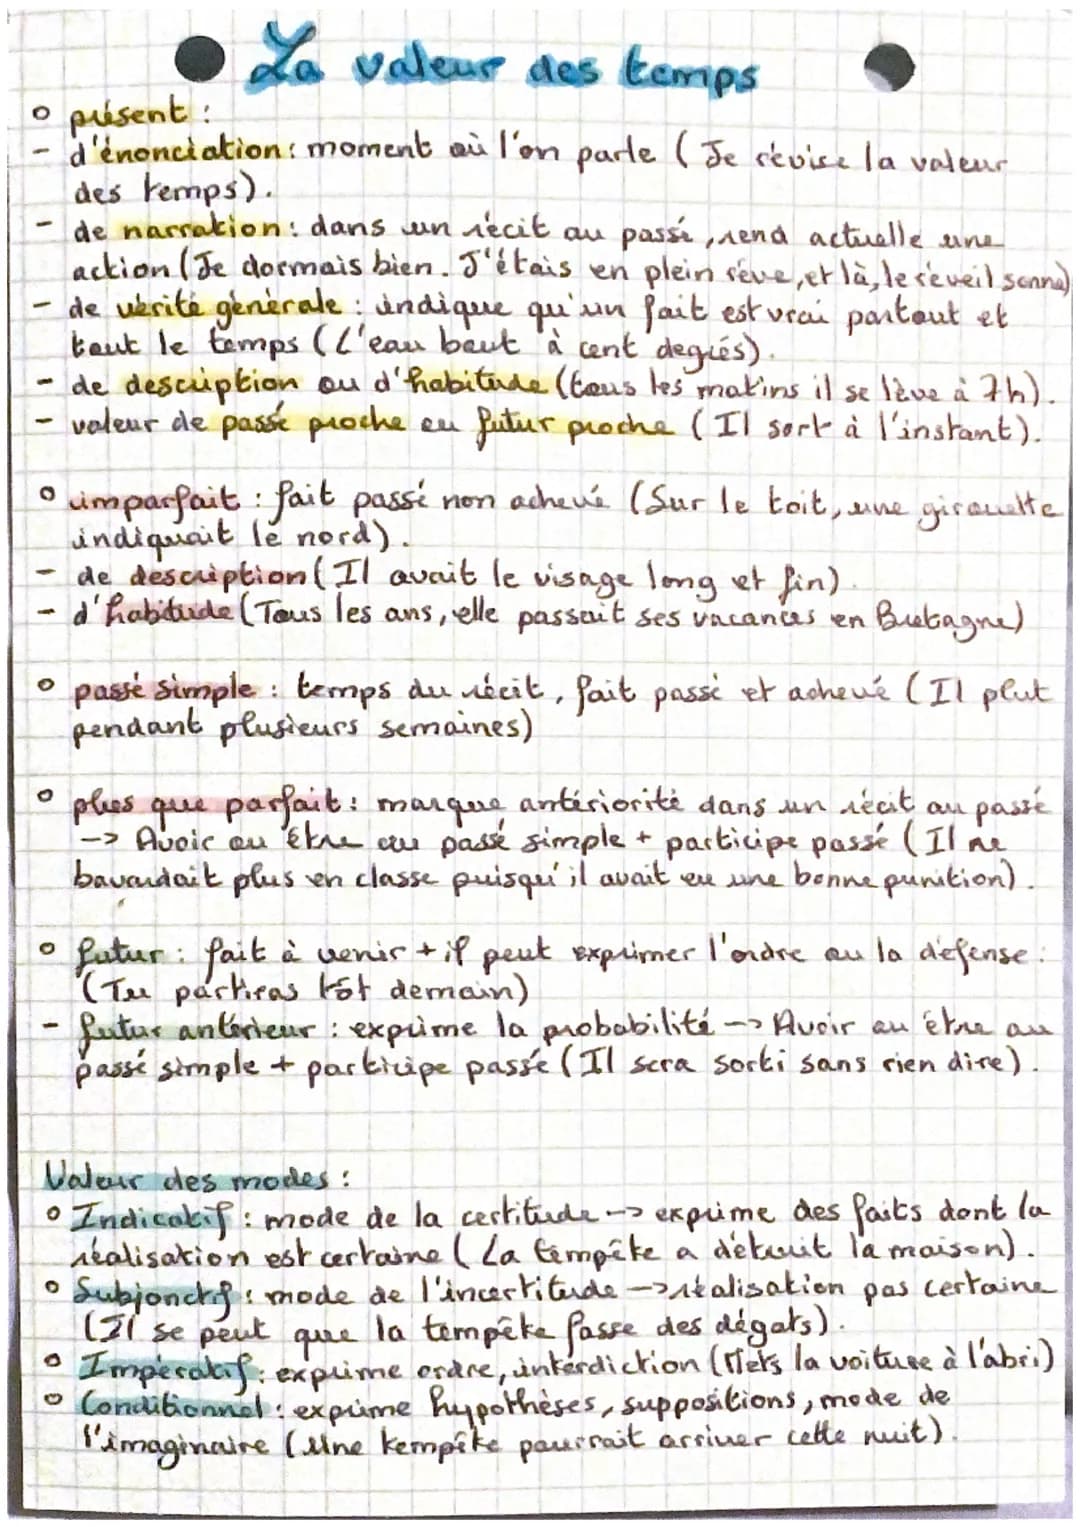 La valeur des temps
° présent :
- d'énonciation : moment où l'on parle ( Je révise la valeur
des temps).
- de narration : dans un récit au passé, rend actuelle une
action (Je dormais bien. J'étais en plein rêve, et là, le réveil sonne)
- de vérité générale : indique qu'un fait est vrai partout et
tout le temps (L'eau bout à cent degrés).
- de description ou d'habitude (tous les matins il se lève à 7h).
- valeur de passé proche ou futur proche ( Il sort à l'instant).
° imparfait : fait passé non achevé (Sur le toit, une girouette
indiquait le nord).
- de description ( Il avait le visage long et fin)
- d'habitude (Tous les ans, elle passait ses vacances en Bretagne)
° passé simple : temps du récit, fait passé et achevé ( Il plut
pendant plusieurs semaines)
° plus que parfait : marque antériorité dans un récit au passé
-> Avoir ou être au passé simple + participe passé ( Il ne
bavardait plus en classe puisqu'il avait eu une bonne punition).
° futur : fait à venir + il peut exprimer l'ordre ou la défense :
(Tu partiras tôt demain)
- futur antérieur : exprime la probabilité -> Avoir ou être au
passé simple + participe passé ( Il sera sorti sans rien dire).
Valeur des modes :
° Indicatif : mode de la certitude -> exprime des faits dont la
réalisation est certaine ( La tempête a détruit la maison).
° Subjonctif : mode de l'incertitude -> réalisation pas certaine
(Il se peut que la tempête fasse des dégats).
° Impératif : exprime ordre, interdiction (Mets la voiture à l'abri)
° Conditionnel : exprime hypothèses, suppositions, mode de
l'imaginaire (Une tempête pourrait arriver cette nuit).